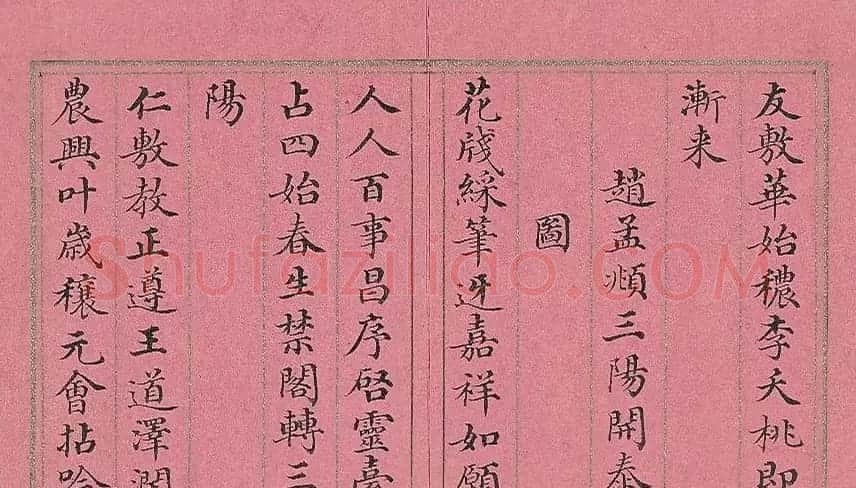 友敷華始穠李夭桃即
漸来
趙孟頫三陽開泰
圖
花牋綵筆迓嘉祥如願
人人百事昌序啓靈臺
占四始春生禁閣轉三
陽
仁敷教正遵王道澤潤
農興叶歲穰元會拈吟
Shufaziliao.COM